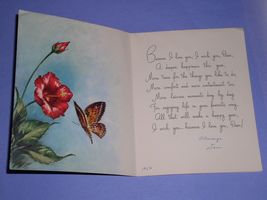 Because I love you, I wish you, Dear,
A deeper happiness this year,
More time for the things you like to do,
More comfort and more contentment, too,
More leisure moments day by day
For enjoying life in your favorite way,
All that will make a happy year,
I wish you, because I love you, Dear!
Always